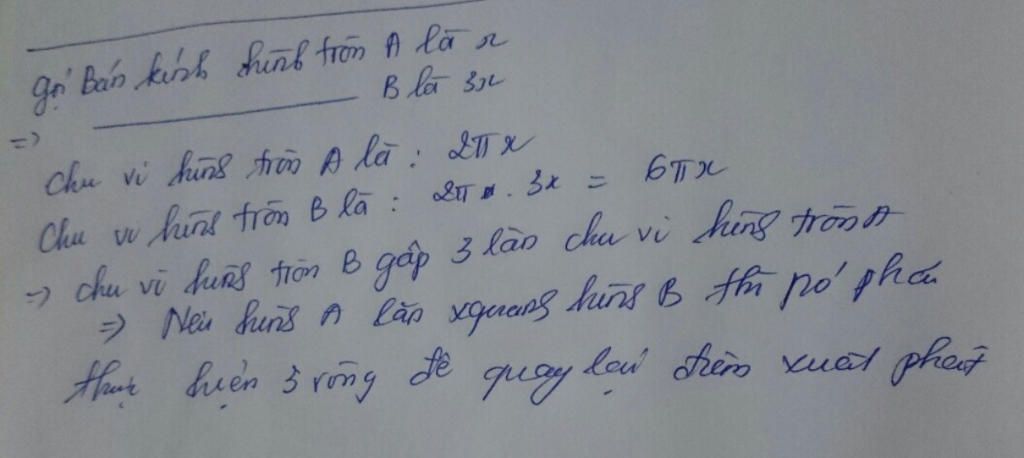 gọi Bán kính hình tròn A là x
=> ____________ B là 3x
Chu vi hình tròn A là : 2πx
Chu vi hình tròn B là : 2π . 3x = 6πx
=> chu vi hình tròn B gấp 3 lần chu vi hình tròn A
=> Nếu hình A lăn xquanh hình B thì nó phải
thực hiện 3 vòng để quay lại điểm xuất phát